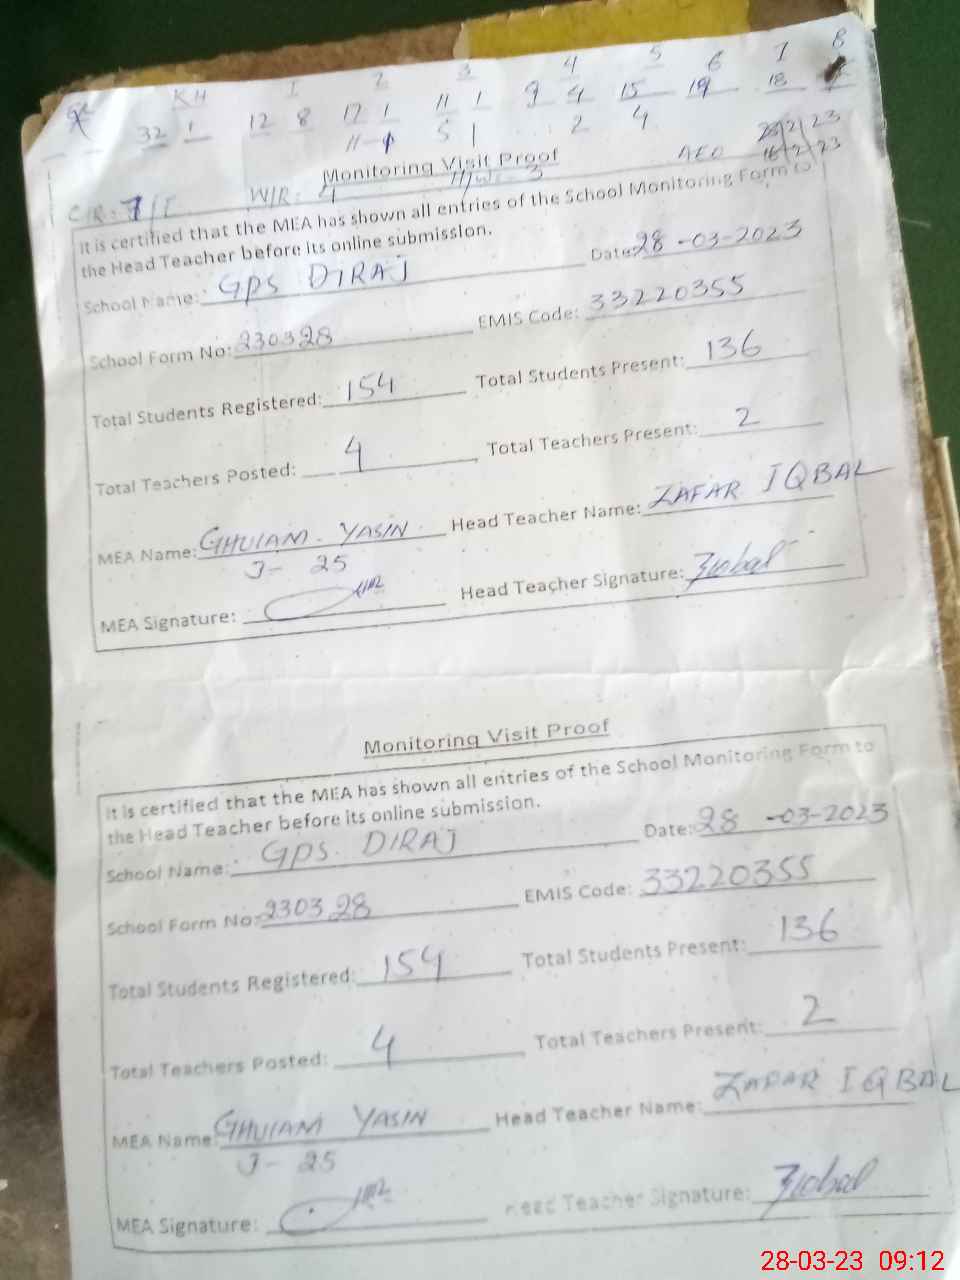 KH 1 2 3 4 5 6 7 8
32 1 12 8 12 1 11 1 9 4 15 19 18
11-1 5 1 2 4
Monitoring Visit Proof
AEO 16/2/23
C/R: 7/E W/R: 4 H/W: 3
It is certified that the MEA has shown all entries of the School Monitoring Form to
the Head Teacher before its online submission.
School Name: GPS DIRAJ Date: 28-03-2023
School Form No: 230328 EMIS Code: 33220355
Total Students Registered: 154 Total Students Present: 136
Total Teachers Posted: 4 Total Teachers Present: 2
MEA Name: GHULAM YASIN Head Teacher Name: ZAFAR IQBAL
J-25
MEA Signature: Head Teacher Signature: ZIqbal
Monitoring Visit Proof
It is certified that the MEA has shown all entries of the School Monitoring Form to
the Head Teacher before its online submission.
School Name: GPS DIRAJ Date: 28-03-2023
School Form No: 230328 EMIS Code: 33220355
Total Students Registered: 154 Total Students Present: 136
Total Teachers Posted: 4 Total Teachers Present: 2
MEA Name: GHULAM YASIN Head Teacher Name: ZAFAR IQBAL
J-25
MEA Signature: Head Teacher Signature: ZIqbal
28-03-23 09:12